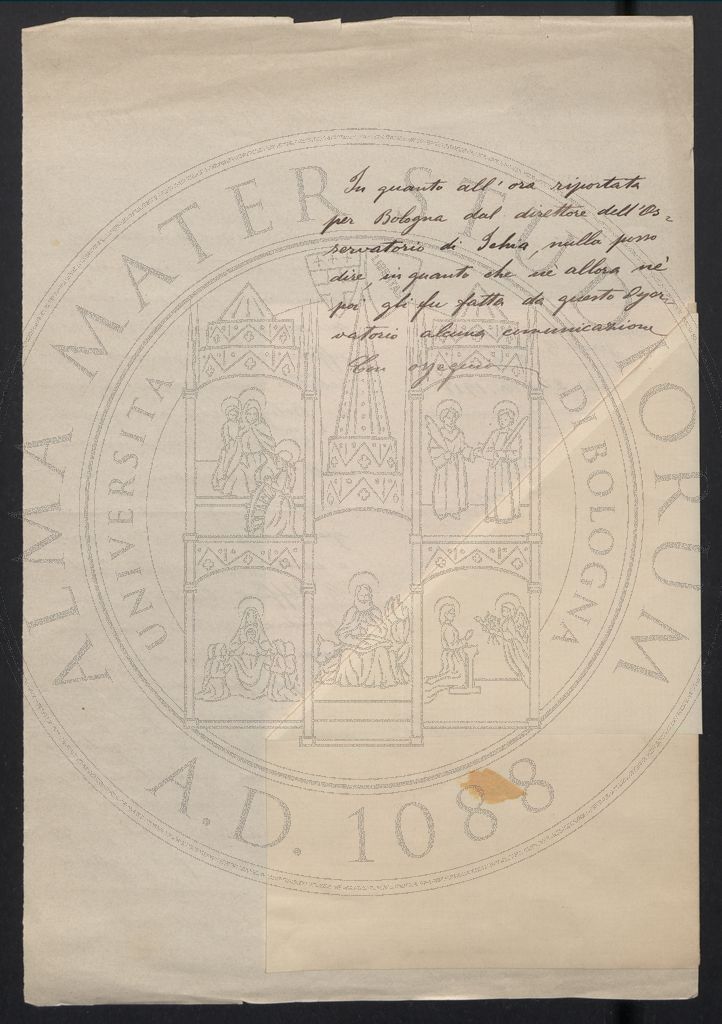 In quanto all'ora riportata
per Bologna dal direttore dell'Os=
servatorio di Ischia, nulla posso
dire, in quanto che nè allora nè
poi gli fu fatta da questo Osser=
vatorio alcuna comunicazione
Con ossequio
ALMA MATER STUDIORUM
UNIVERSITA DI BOLOGNA
A.D. 1088